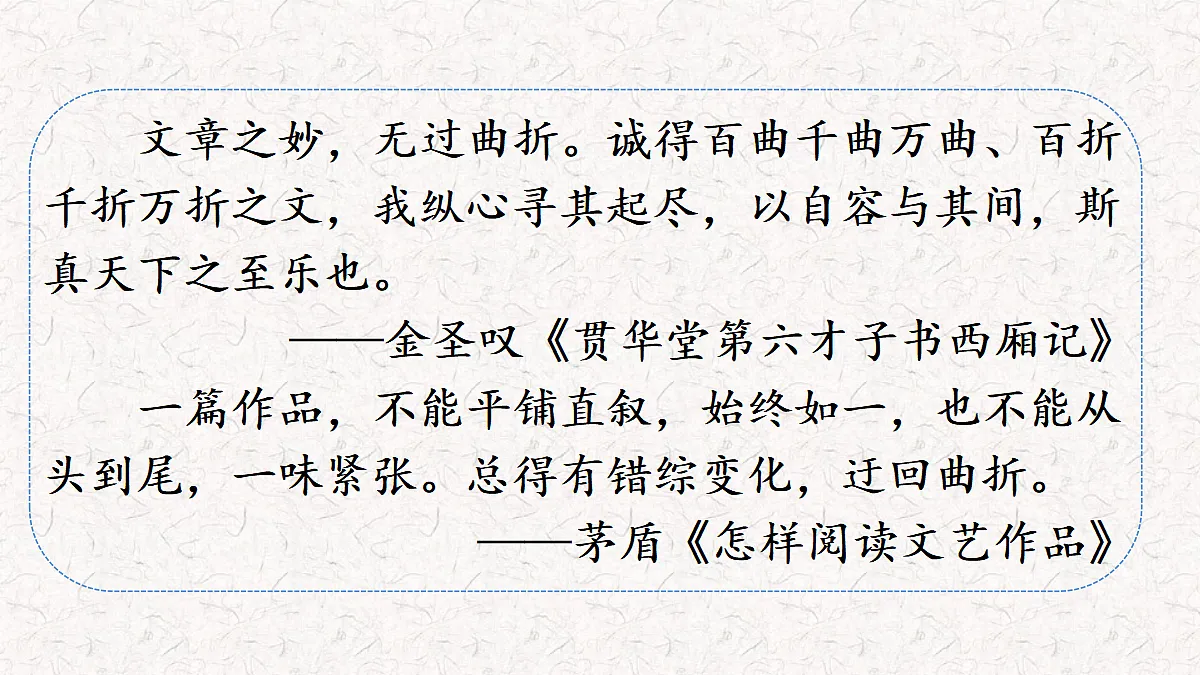 文章之妙，无过曲折。诚得百曲千曲万曲、百折
千折万折之文，我纵心寻其起尽，以自容与其间，斯
真天下之至乐也。
——金圣叹《贯华堂第六才子书西厢记》
一篇作品，不能平铺直叙，始终如一，也不能从
头到尾，一味紧张。总得有错综变化，迂回曲折。
——茅盾《怎样阅读文艺作品》